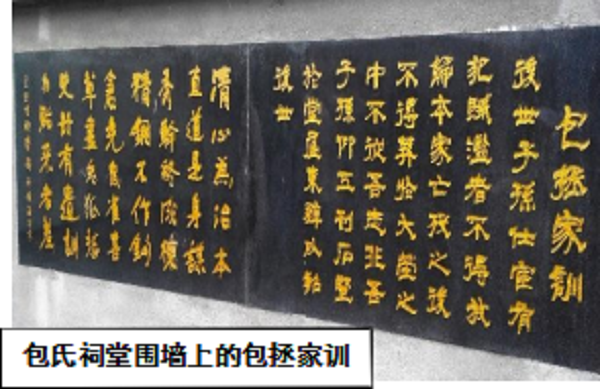 包拯家訓
後世子孫仕宦有
犯賍濫者不得放
歸本家亡殁之後
不得葬於大塋之
中不從吾志非吾
子孫仰工刊石竪
於堂屋東壁以詔
後世
清心為治本
直道是身謀
秀幹終成棟
精鋼不作鈎
倉充鼠雀喜
草盡兔狐愁
史冊有遺訓
勿貽來者羞
包氏祠堂围墙上的包拯家训